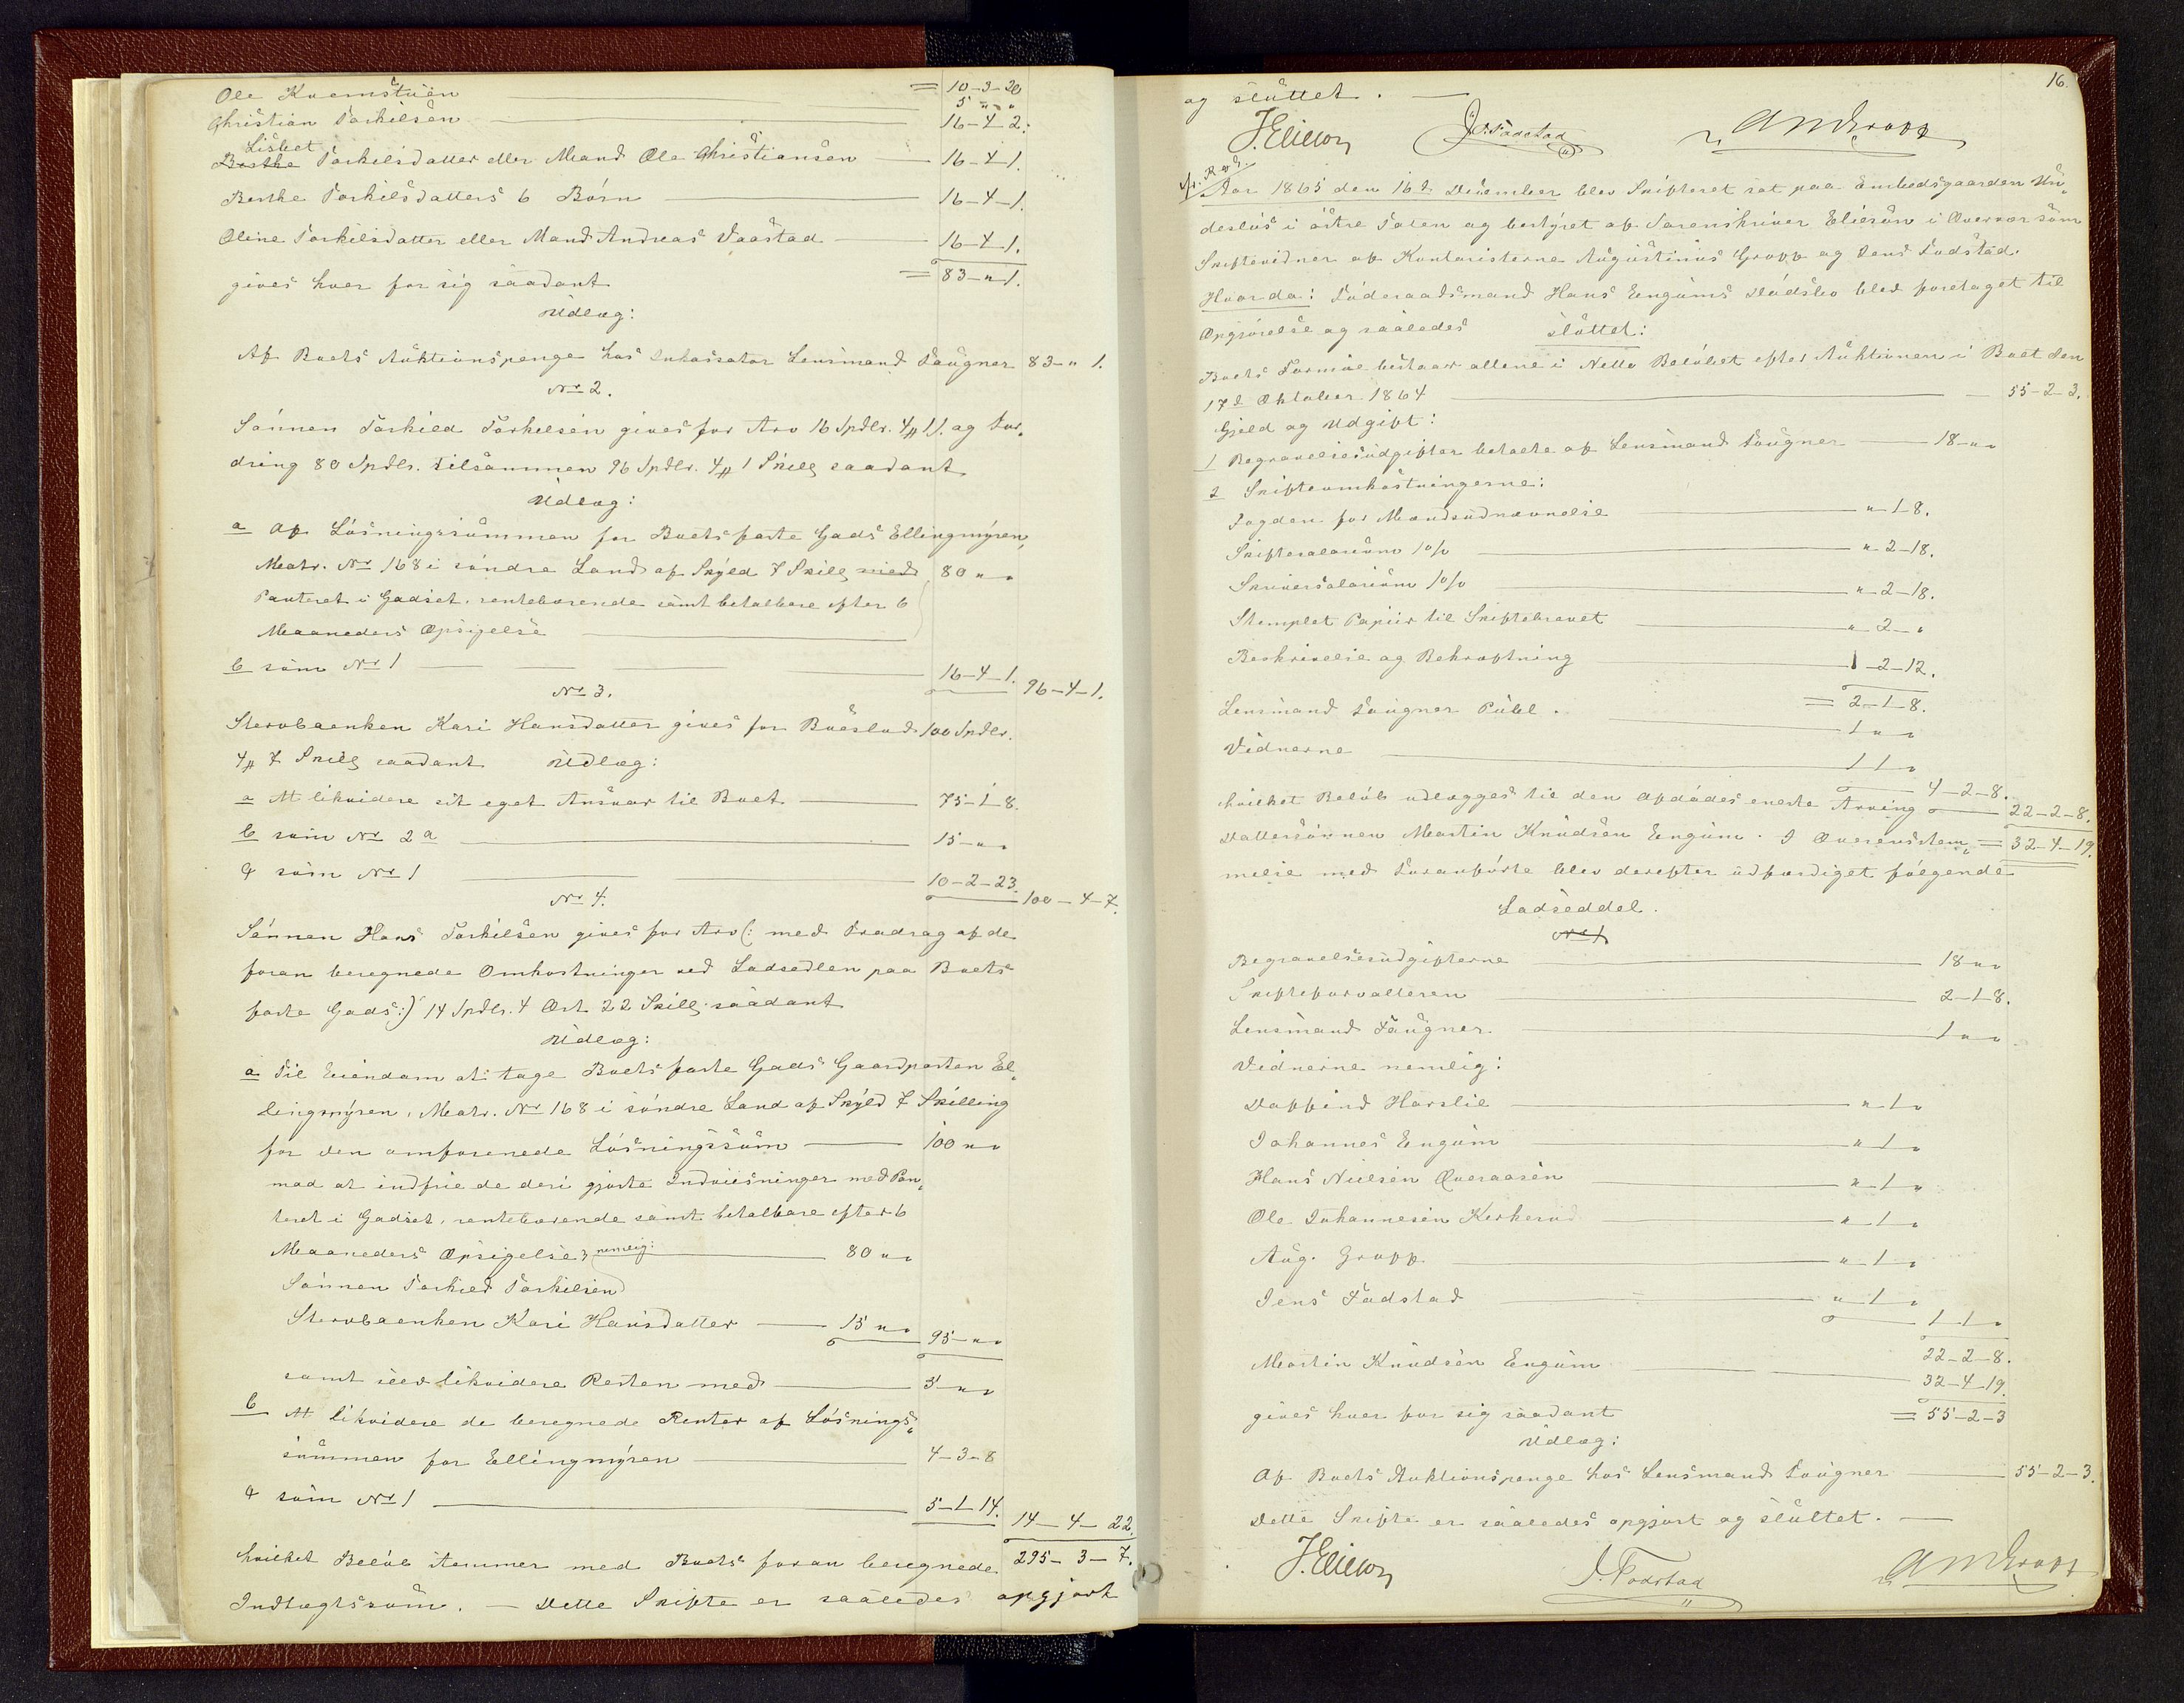 Ole Kvernstuen = 10-3-20
5 " "
Christian Torkilsen 16-4-2.
Lisbet
Berthe Torkilsdatter eller Mand Ole Christiansen 16-4-1.
Berthe Torkilsdatters 6 Börn 16-4-1.
Oline Torkilsdatter eller Mand Andreas Vaastad 16-4-1.
gives hver for sig saadant = 83-"-1.
Udlæg:
Af Boets Auktionspenge hos Inkassator Lensmand Taugner 83-"-1.
No 2.
Sönnen Torkild Torkelsen gives for Arv 16 Spdlr. 4 # 1 s. og For„
dring 80 Spdlr. tilsammen 96 Spdlr. 4 # 1 Skill saadant
Udlæg:
a Af Lösningssummen for Boets faste Gods Ellingmyren,
Matr. No 168 i söndre Land af Skyld 7 Skill med 80 " "
Panteret i Godset, rentebærende samt betalbare efter 6
Maaneders Opsigelse
b som No 1 16-4-1.
96-4-1.
No 3.
Stervboenken Kari Hansdatter gives for Boeslod 100 Spdlr.
4 # 7 Skill saadant Udlæg:
a At likvidere sit eget Ansvar til Boet 75-1-8.
b som No 2 a 15-" "
c som No 1 10-2-23.
100-4-7.
No 4.
Sönnen Hans Torkilsen gives for Arv (: med Fradrag af de
foran beregnede Omkostninger ved Lodsedlen paa Boets
faste Gods:) 14 Spdlr. 4 Ort 22 Skill saadant
Udlæg:
a Til Eiendom at tage Boets faste Gods Gaardparten El„
lingmyren, Matr. No 168 i söndre Land af Skyld 7 Skilling
for den omforenede Lösningssum 100 " "
mod at indfrie de deri gjorte Indviisninger med Pan„
teret i Godset, rentebærende samt betalbare efter 6
Maaneders Opsigelse, nemlig: 80 " "
Sönnen Torkild Torkilsen
Stervboenken Kari Hansdatter 15 " "
95-" "
samt selv likvidere Resten med 5 " "
b At likvidere de beregnede Renter af Lösnings„
summen for Ellingmyren 4-3-8
c som No 1 5-1-14.
14-4-22.
hvilket Belöb stemmer med Boets foran beregnede 295-3-7.
Indtægtssum. — Dette Skifte er saaledes opgjort
16
og sluttet. —
J. Elieson J. Fodstad A M Gropp
Aar 1865 den 16d December blev Skifteret sat paa Embedsgaarden Un„
deslös i östre Toten og bestyret af Sorenskriver Elieson i Overvær som
Skiftevidner af Kontoristerne Augustinus Gropp og Jens Fodstad.
Hvorda: Föderaadsmand Hans Engums Dödsbo blev foretaget til
Opgjörelse og saaledes sluttet:
Boets Formue bestaar allene i Netto Belöbet efter Auktionen i Boet den
17d Oktober 1864 55-2-3.
Gjeld og Udgift:
1 Begravelsesudgifter betalte af Lensmand Taugner 18-" "
2 Skifteomkostningerne:
Fogden for Mandsudnævnelse " 1-8.
Skiftesalarium 1% "-2-18.
Skriversalarium 1% "-2-18.
Stemplet Papiir til Skiftebrevet "-2-"
Beskrivelse og Bekræftning 1-2-12.
= 2-1-8.
Lensmand Taugner Publ. 1 " "
Vidnerne 1 1 "
4-2-8.
hvilket Belöb udlægges til den Afdödes eneste Arving 22-2-8.
Dattersönnen Martin Knudsen Engum. I Overensstem„ = 32-4-19.
melse med Foranförte blev derefter udfærdiget fölgende
Lodseddel.
No 1
Begravelsesudgifterne 18 " "
Skifteforvalteren 2-1-8.
Lensmand Taugner 1 " "
Vidnerne nemlig:
Daffind Harslie " 1 "
Johannes Engum " 1 "
Hans Nielsen Overaasen " 1 "
Ole Johannesen Kerkerud " 1 "
Aug. Gropp " 1 "
Jens Fodstad " 1 "
1 1 "
22-2-8.
Martin Knudsen Engum 32-4-19.
gives hver for sig saadant = 55-2-3
Udlæg:
Af Boets Auktionspenge hos Lensmand Taugner 55-2-3.
Dette Skifte er saaledes opgjort og sluttet. —
J. Elieson J. Fodstad A M Gropp